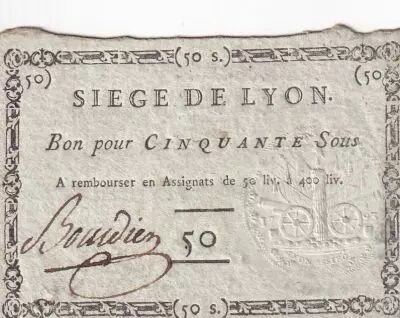 (50 s.)
50) (50
SIEGE DE LYON.
Bon pour CINQUANTE Sous
A rembourser en Assignats de 50 liv. à 400 liv.
Bourdien 50
(50 s.)